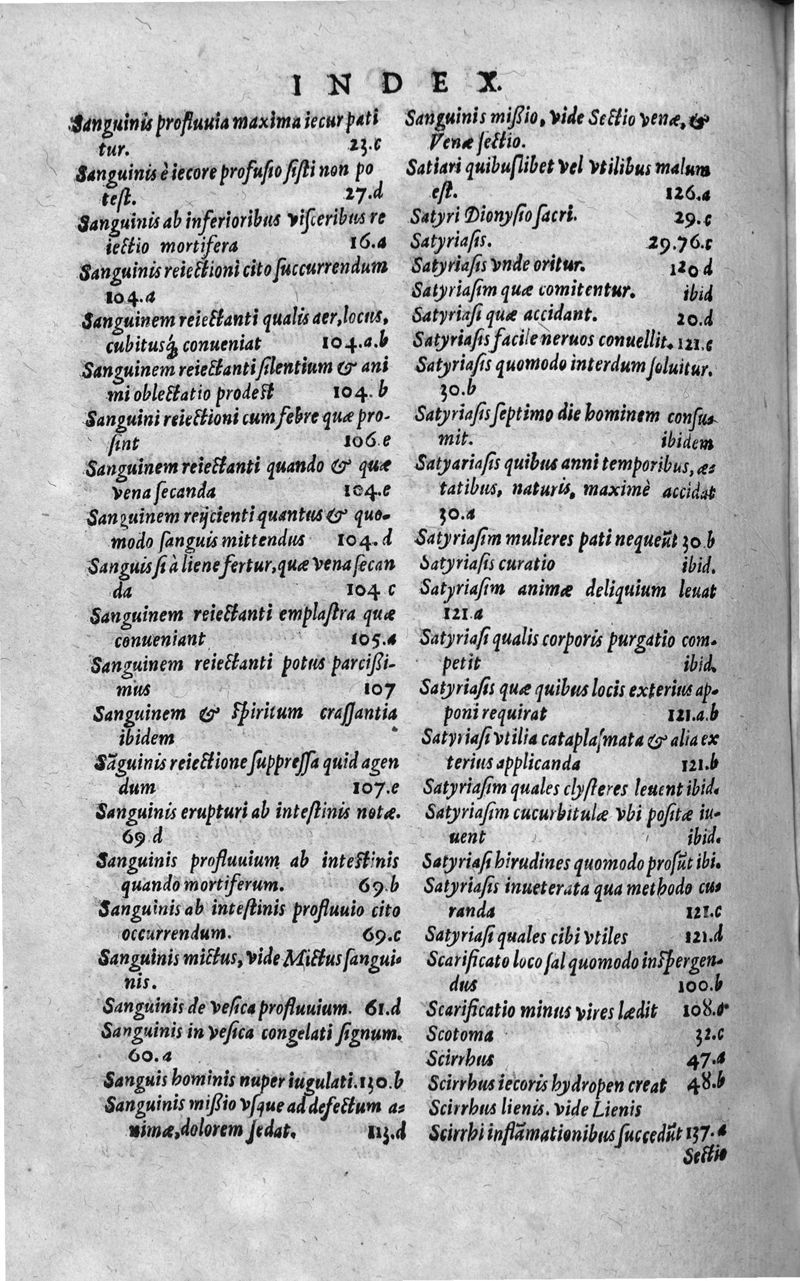 INDEX.
Sanguinis profluuia maxima iecur pati
tur. 23.c
Sanguinis è iecore profusio sisti non po
test. 27.d
Sanguinis ab inferioribus visceribus re
iectio mortifera 16.a
Sanguinis reiectioni cito succurrendum
104.a
Sanguinem reiectanti qualis aer, locus,
cubitusq́ conueniat 104.a.b
Sanguinem reiectanti silentium & ani
mi oblectatio prodest 104.b
Sanguini reiectioni cum febre quæ pro-
sint 106.e
Sanguinem reiectanti quando & quæ
vena secanda 104.e
Sanguinem reijcienti quantus & quo-
modo sanguis mittendus 104.d
Sanguis si à liene fertur, quæ vena secan
da 104 c
Sanguinem reiectanti emplastra quæ
conueniant 105.a
Sanguinem reiectanti potus parcißi-
mus 107
Sanguinem & spiritum crassantia
ibidem
Sãguinis reiectione suppressa quid agen
dum 107.e
Sanguinis erupturi ab intestinis notæ.
69 d
Sanguinis profluuium ab intestinis
quando mortiferum. 69.b
Sanguinis ab intestinis profluuio cito
occurrendum. 69.c
Sanguinis mictus, vide Mictus sangui-
nis.
Sanguinis de vesica profluuium. 61.d
Sanguinis in vesica congelati signum.
60.a
Sanguis hominis nuper iugulati. 130.b
Sanguinis mißio vsque ad defectum a-
nimæ, dolorem sedat. 113.d
Sanguinis mißio, vide Sectio venæ, &
Venæ sectio.
Satiari quibuslibet vel vtilibus malum
est. 126.a
Satyri Dionysio sacri. 29.c
Satyriasis. 29.76.c
Satyriasis vnde oritur. 120 d
Satyriasim quæ comitentur. ibid
Satyriasi quæ accidant. 20.d
Satyriasis facile neruos conuellit. 121.c
Satyriasis quomodo interdum soluitur.
30.b
Satyriasis septimo die hominem consu-
mit. ibidem
Satyariasis quibus anni temporibus, æ-
tatibus, naturis, maximè accidat
30.a
Satyriasim mulieres pati nequeũt 30.b
Satyriasis curatio ibid.
Satyriasim animæ deliquium leuat
121.a
Satyriasi qualis corporis purgatio com-
petit ibid.
Satyriasis quæ quibus locis exterius ap-
poni requirat 121.a.b
Satyriasi vtilia cataplasmata & alia ex
terius applicanda 121.b
Satyriasim quales clysteres leuent ibid.
Satyriasim cucurbitulæ vbi positæ iu-
uent ibid.
Satyriasi hirudines quomodo prosũt ibi.
Satyriasis inueterata qua methodo cu-
randa 121.c
Satyriasi quales cibi vtiles 121.d
Scarificato loco sal quomodo inspergen-
dus 100.b
Scarificatio minus vires lædit 108.a
Scotoma 32.c
Scirrhus 47.a
Scirrhus iecoris hydropen creat 48.b
Scirrhus lienis. vide Lienis
Scirrhi inflãmationibus succedũt 137.a
Sectio